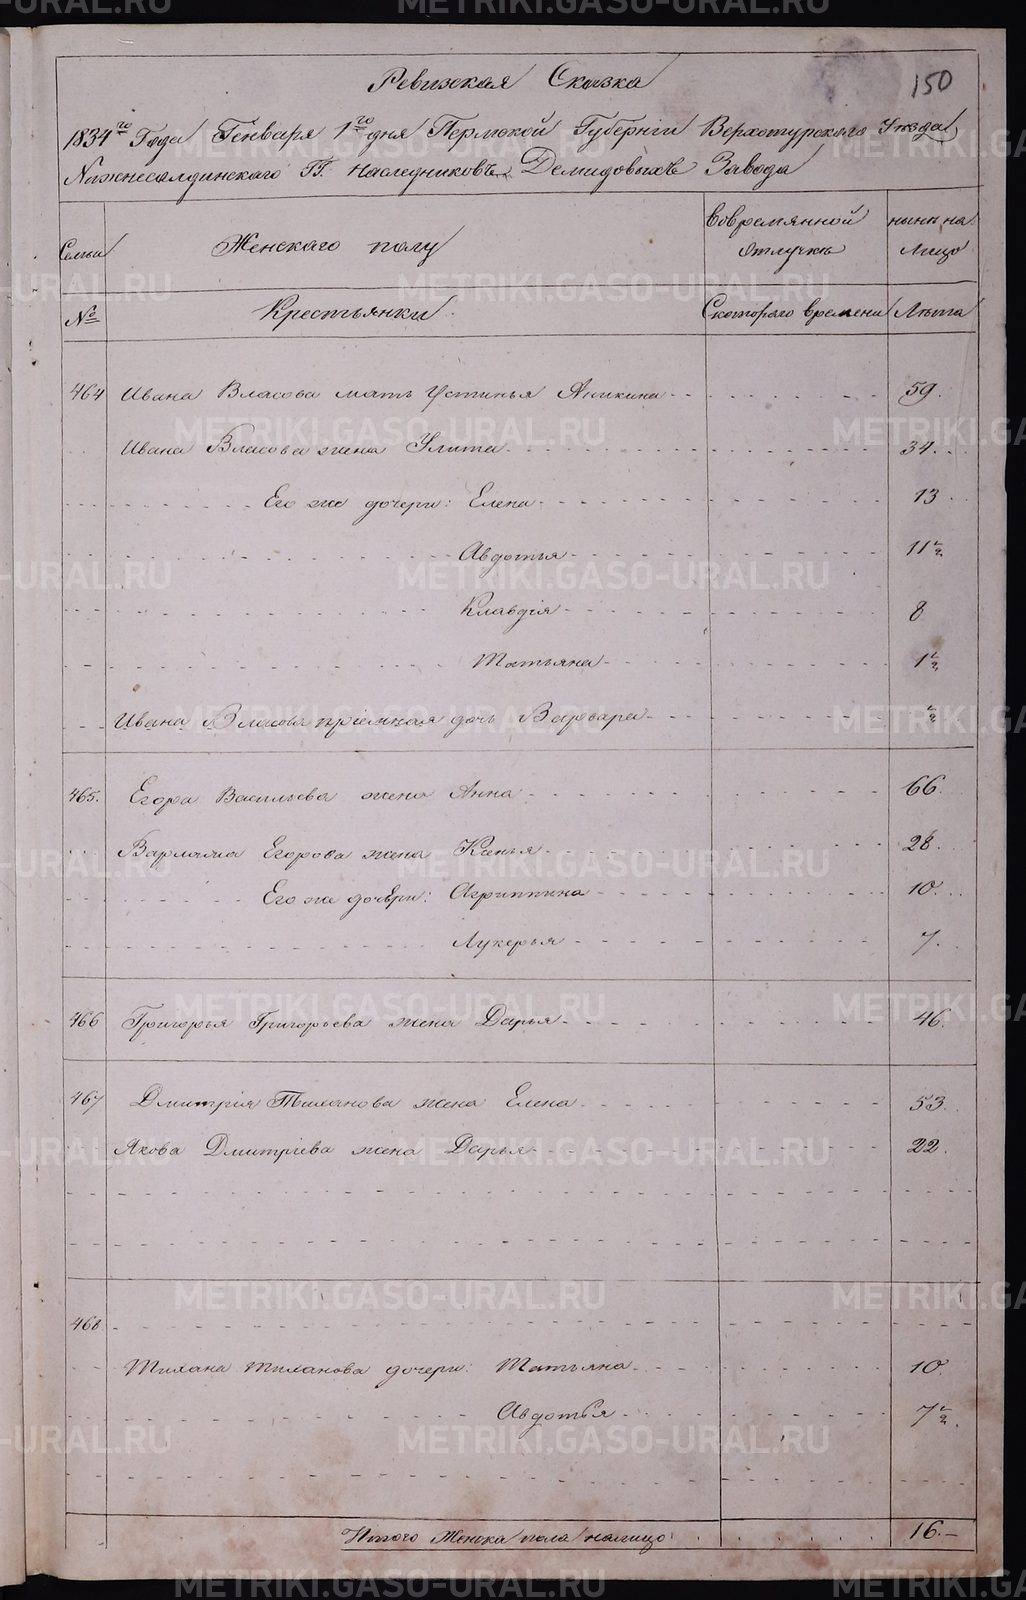 150
Ревизская Сказка
1834го Года Генваря 1го дня Пермской Губернiи Верхотурскаго Уѣзда
Нижнесалдинскаго ГГ. Наследниковъ Демидовыхъ Завода
Семьи Женскаго полу Вовремянной отлучкѣ нынѣ на Лицо
№ Крестьянки Скотораго времени Лѣта
464 Ивана Власова мать Устинья Аникина 59.
Ивана Власова жена Улита 34.
Его же дочери: Елена 13
Авдотья 11 1/2
Клавдiя 8
Татьяна 1 1/2
Ивана Власова прiемная дочь Варвара 1/2
465. Егора Васильева жена Анна 66.
Варлама Егорова жена Ксенья 28.
Его же дочери: Агриппина 10.
Лукерья 7.
466 Григорья Григорьева жена Дарья 46.
467 Дмитрiя Тиханова жена Елена 53.
Якова Дмитрiева жена Дарья 22.
468
Тихана Тиханова дочери: Татьяна 10.
Авдотья 7 1/2.
Итого Женска пола налицо 16.
METRIKI.GASO-URAL.RU